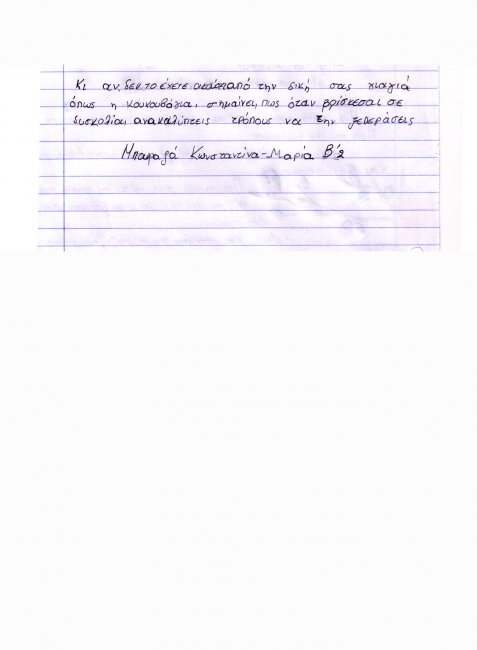 Κι αν δεν το έχετε ακούσει από την δική σας γιαγιά
όπως η κουκουβάγια, σημαίνει πως όταν βρίσκεσαι σε
δυσκολία, ανακαλύπτεις τρόπους να την ξεπεράσεις
Κωνσταντίνα-Μαρία Β'2